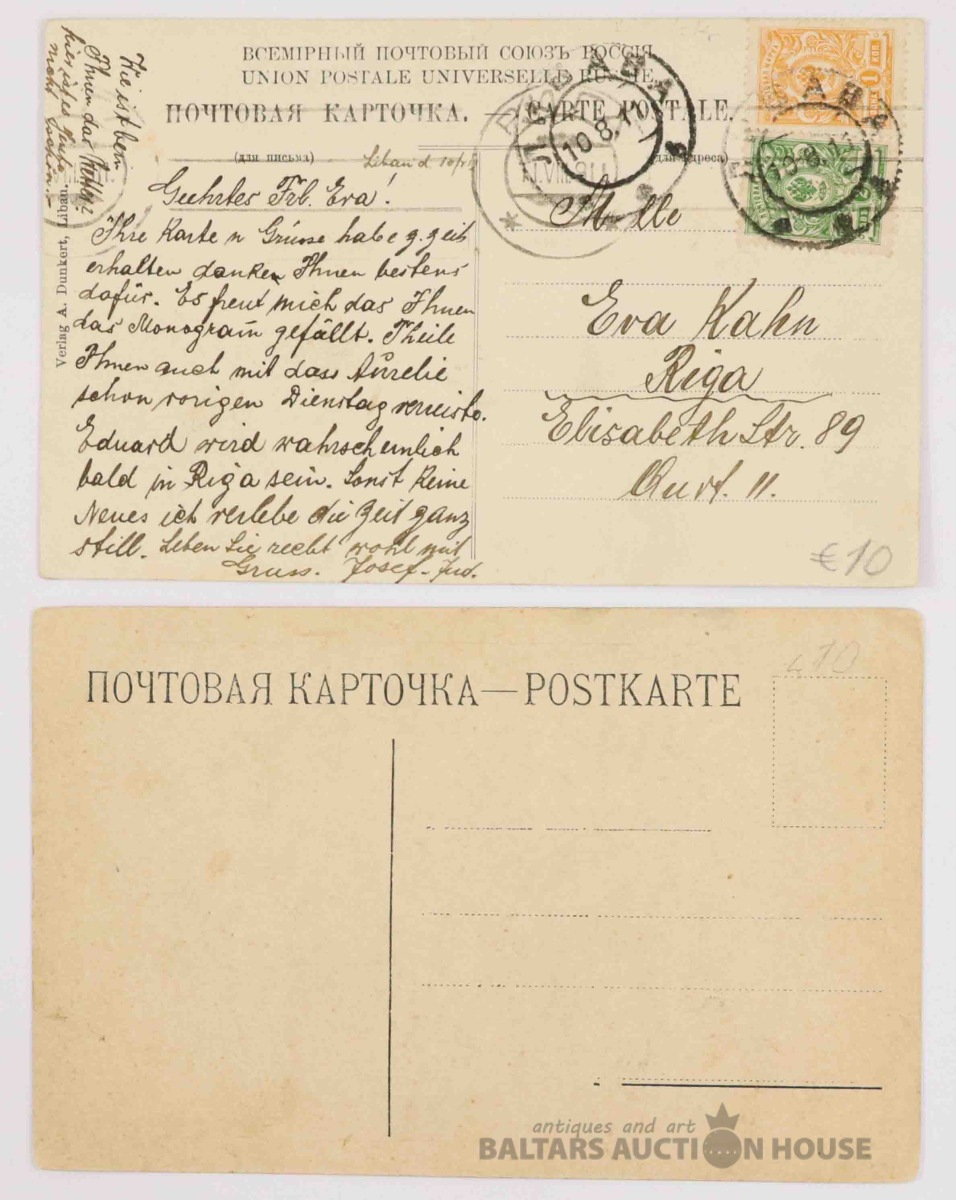 ВСЕМІРНЫЙ ПОЧТОВЫЙ СОЮЗЪ РОССІЯ
UNION POSTALE UNIVERSELLE RUSSIE.
ПОЧТОВАЯ КАРТОЧКА. — CARTE POSTALE.
(для письма)
(для адреса)
Libau d 10/
Geehrtes Frl. Eva!
Ihre Karte n Grüsse habe z. Zeit
erhalten danken Ihnen bestens
dafür. Es freut mich das Ihnen
das Monogram gefällt. Theile
Ihnen auch mit dass Aurelie
schon vorigen Dienstag verreiste.
Eduard wird wahrscheinlich
bald in Riga sein. Sonst keine
Neues ich verlebe die Zeit ganz
still. Leben Sie recht wohl mit
Gruss. Josef
Wie ist
Ihnen das
hier
nicht
Verlag A. Dunkert, Libau.
10 8. 11
VIII
Mlle
Eva Kahn
Riga
Elisabeth Str. 89
Qurt. 11.
1 КОП
€10
ПОЧТОВАЯ КАРТОЧКА—POSTKARTE
10
antiques and art
BALTARS AUCTION HOUSE